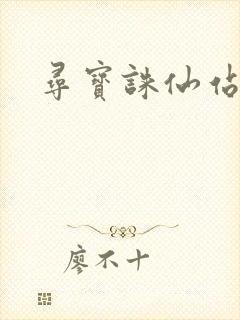 尋寶誅仙佔
廖不十